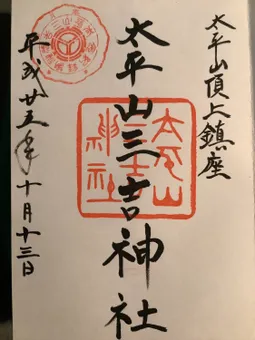 太平山頂上鎮座
太平山三吉神社
太平山
三吉
神社
平成廿五年十月十三日